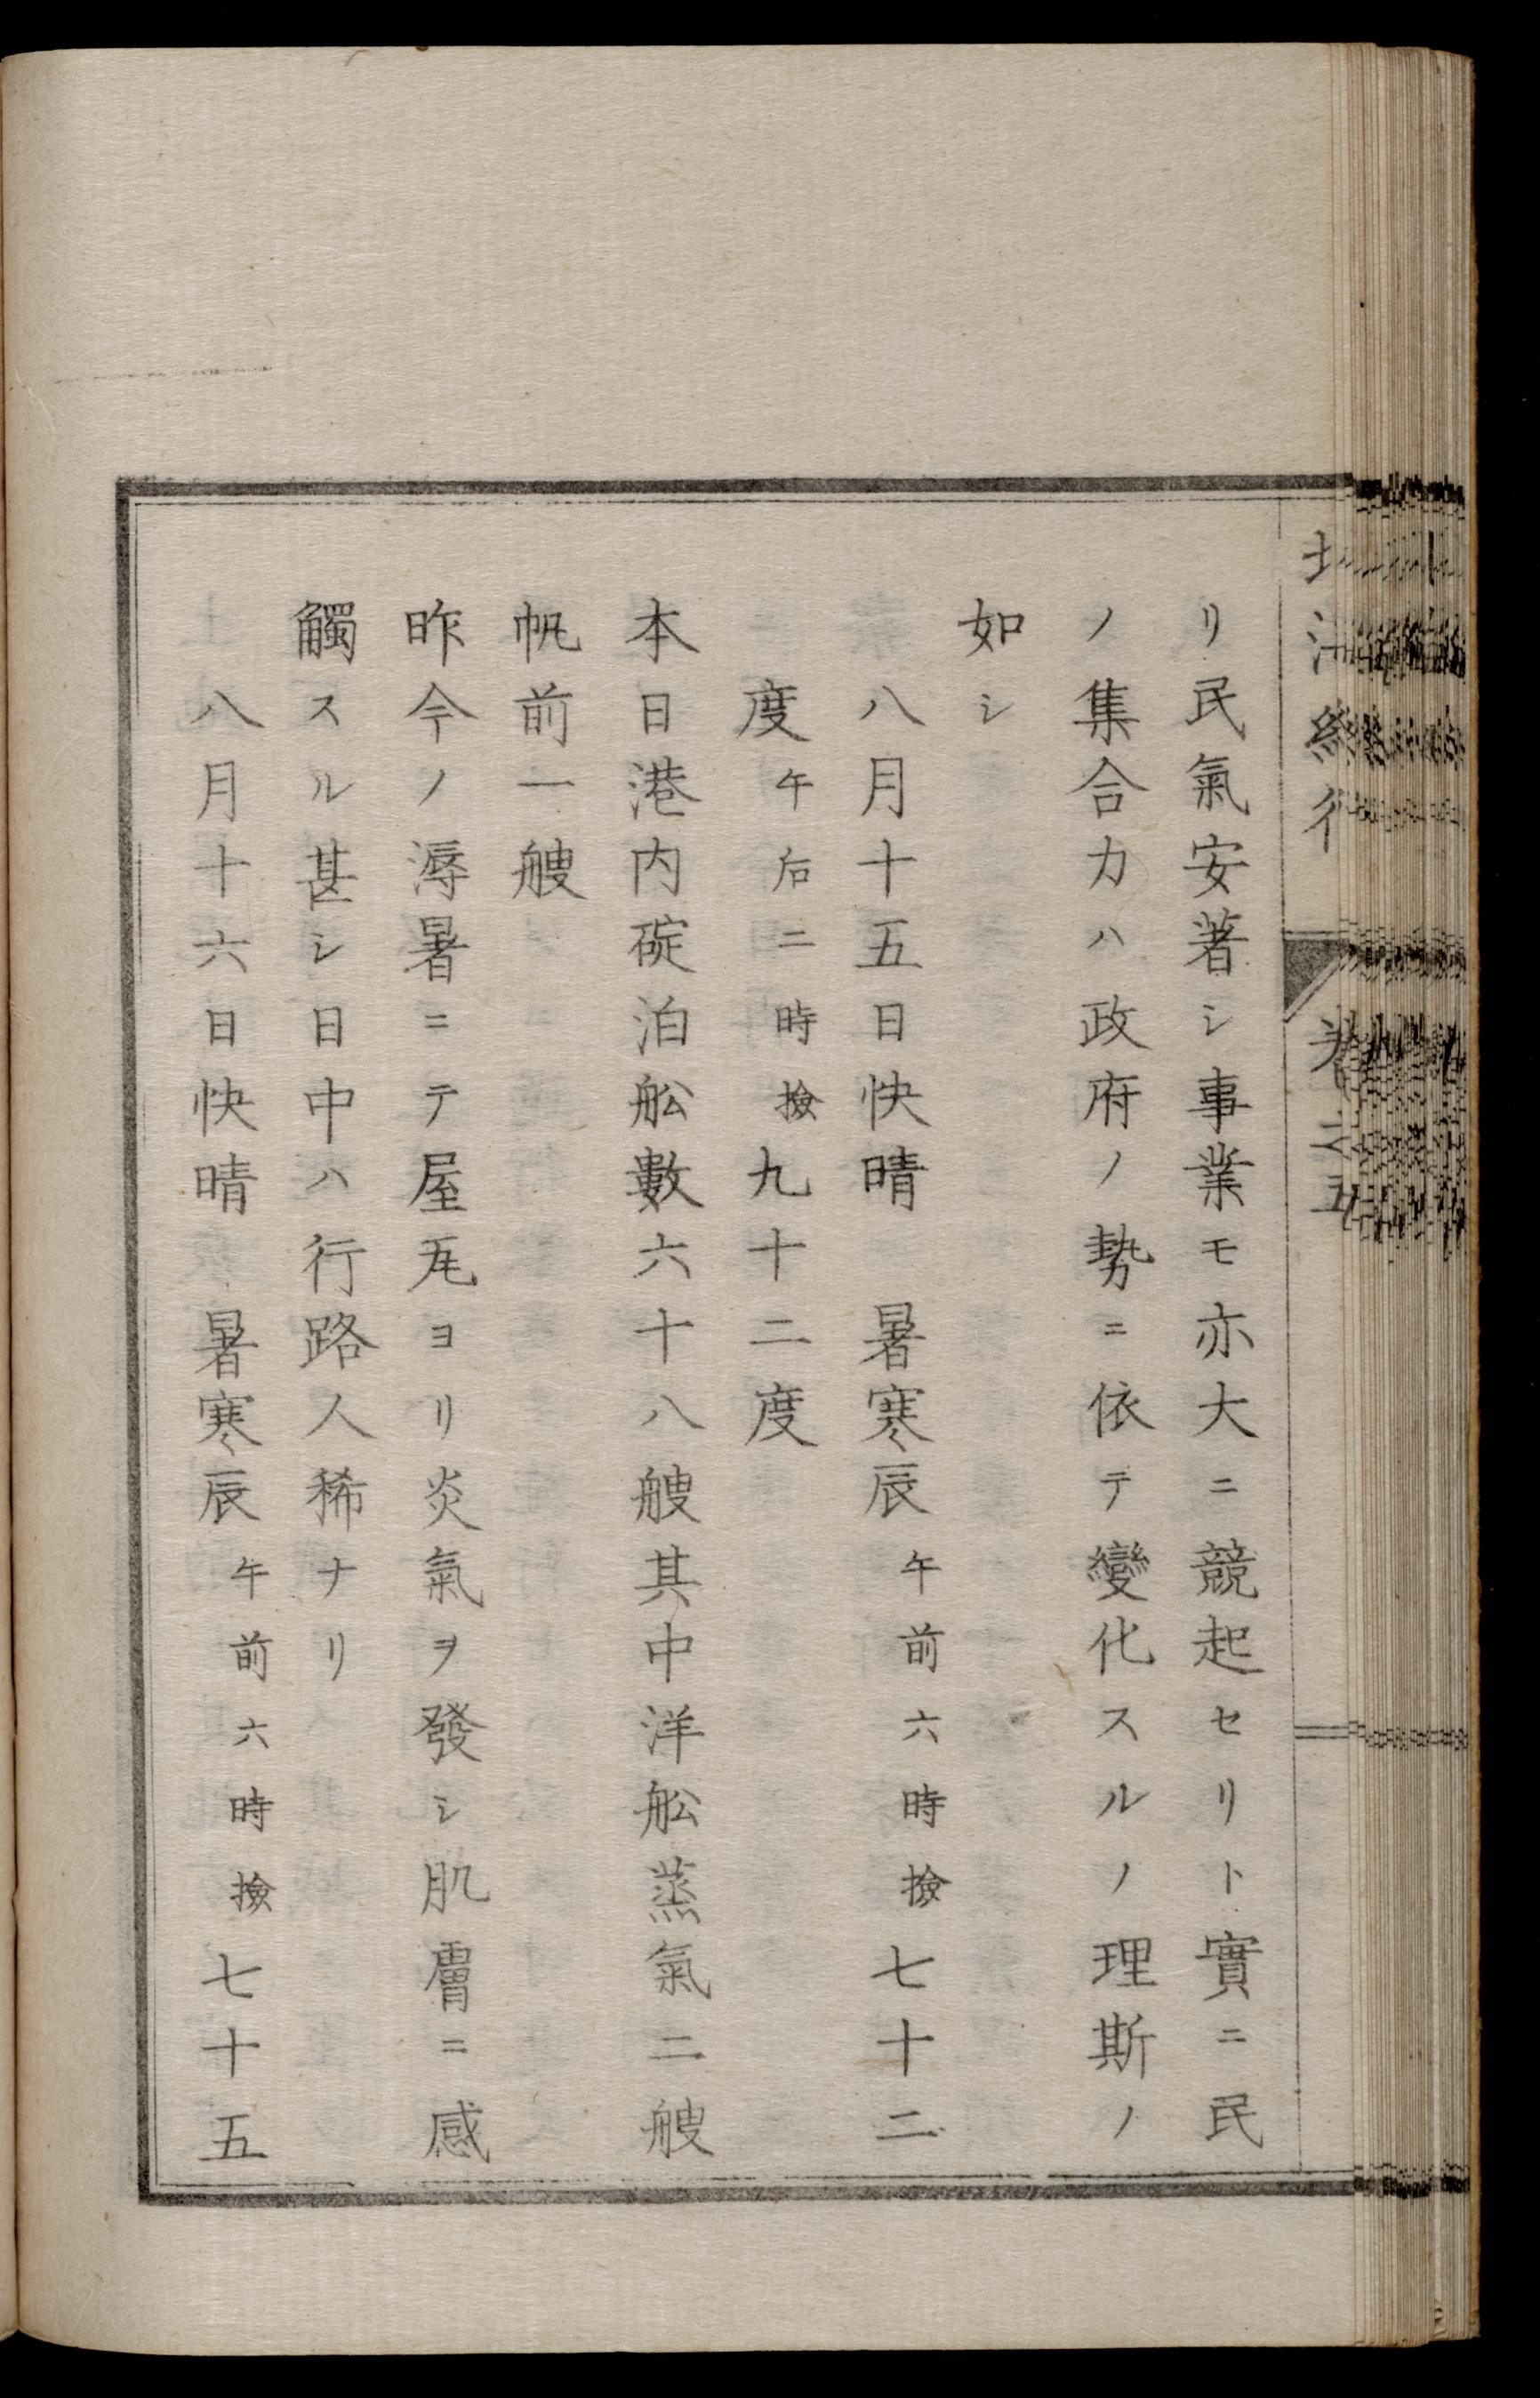 リ民氣安著シ事業モ亦大ニ競起セリト實ニ民
ノ集合力ハ政府ノ勢ニ依テ變化スルノ理斯ノ
如シ
八月十五日快晴 暑寒辰午前六時撿七十二
度午后二時撿九十二度
本日港内碇泊舩數六十八艘其中洋舩蒸氣二艘
帆前一艘
昨今ノ溽暑ニテ屋瓦ヨリ炎氣ヲ發シ肌膚ニ感
觸スル甚シ日中ハ行路人稀ナリ
八月十六日快晴 暑寒辰午前六時撿七十五